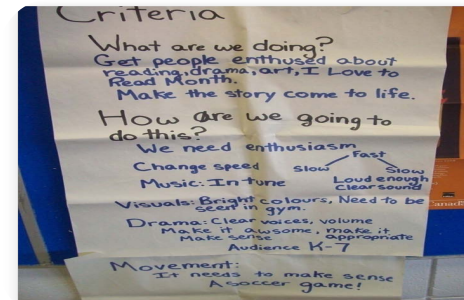 Criteria
What are we doing?
Get people enthused about
reading, drama, art, I Love to
Read Month.
Make the story come to life.
How are we going to
do this?
We need enthusiasm
Fast
Change speed
Slow
Slow
Music: In tune
Loud enough
Clear sound
Visuals: Bright colours, Need to be
seen in gym.
Drama: Clear voices, volume
Make it awsome, make it
Make sense
appropriate
Audience K-7
Movement:
It needs to make sense
A soccer game!